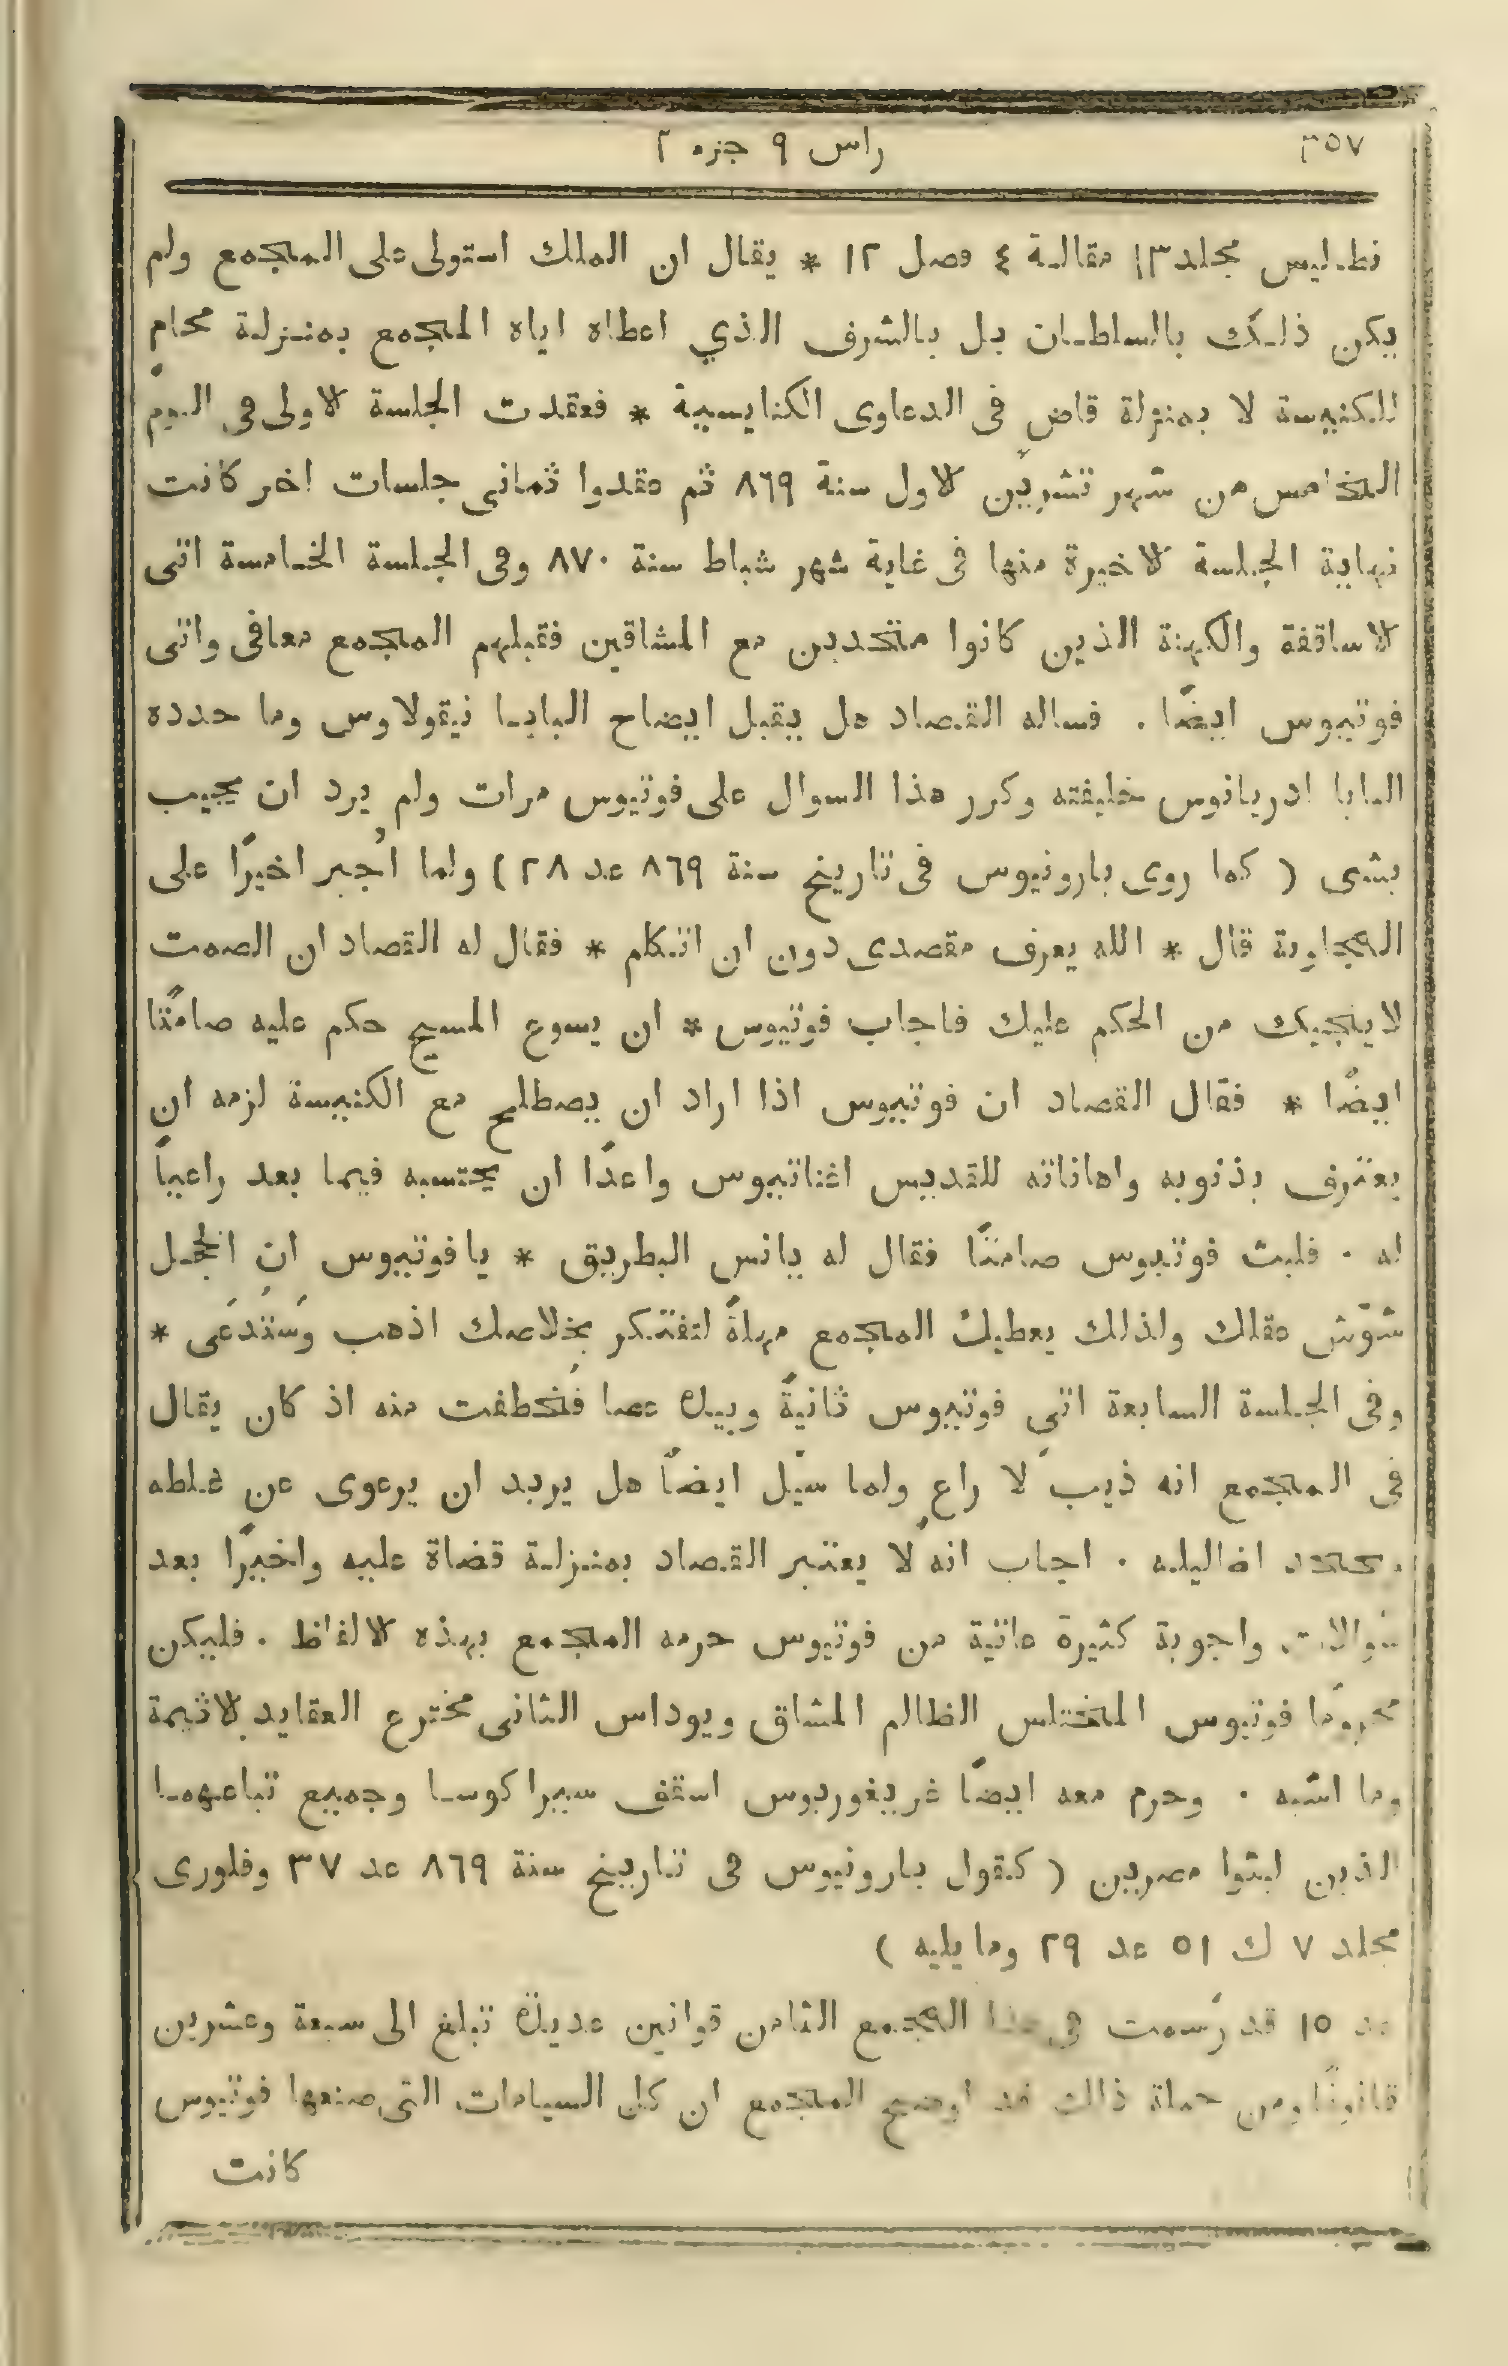 ٣٥٧
راس ٩ جزء ٢
نطاليس مجلد ١٣ مقالة ٤ فصل ١٢ * يقال ان الملك استولى على المجمع ولم
يكن ذلك بالسلطان بل بالشرف الذي اعطاه اياه المجمع بمنزلة محامٍ
للكنيسة لا بمنزلة قاضٍ فى الدعاوى الكنايسية * فعقدت الجلسة لاولى فى اليوم
الخامس من شهر تشرين لاول سنة ٨٦٩ ثم عقدوا ثمانى جلسات اخر كانت
نهاية الجلسة لاخيرة منها فى غاية شهر شباط سنة ٨٧٠ وفى الجلسة الخامسة اتى
لاساقفة والكهنة الذين كانوا متحدين مع المشاقين فقبلهم المجمع معافى واتى
فوتيوس ايضًا . فساله القصاد هل يقبل ايضاح البابا نيقولاوس وما حدده
البابا ادريانوس خليفته وكرر هذا السوال على فوتيوس مرات ولم يرد ان يجيب
بشى ( كما روى بارونيوس فى تاريخ سنة ٨٦٩ عد ٢٨ ) ولما اُجبر اخيرًا على
المجاوبة قال * الله يعرف مقصدى دون ان اتكلم * فقال له القصاد ان الصمت
لا ينجيك من الحكم عليك فاجاب فوتيوس * ان يسوع المسيح حكم عليه صامتًا
ايضًا * فقال القصاد ان فوتيوس اذا اراد ان يصطلح مع الكنيسة لزمه ان
يعترف بذنوبه واهاناته للقديس اغناتيوس واعدًا ان يحتسبه فيما بعد راعيًا
له . فلبث فوتيوس صامتًا فقال له يانس البطريق * يا فوتيوس ان الخجل
شوّش عقلك ولذلك يعطيك المجمع مهلةً لتفتكر بخلاصك اذهب وَسَتُدعَى *
وفى الجلسة السابعة اتى فوتيوس ثانيةً وبيده عصا فَخطفت منه اذ كان يقال
فى المجمع انه ذيب لا راعٍ ولما سيّل ايضًا هل يريد ان يرعوى عن غلطه
ويجحد اضاليله . اجاب انه لا يعتبر القصاد بمنزلة قضاة عليه واخيرًا بعد
سوالات واجوبة كثيرة عاتية من فوتيوس حرمه المجمع بهذه لالفاظ . فليكن
محرومًا فوتيوس المختلس الظالم المشاق ويوداس الثانى مخترع العقايد لاثيمة
وما اشبه . وحرم معه ايضًا غريغوريوس اسقف سيراكوسا وجميع تباعهما
الذين لبثوا مصرين ( كقول بارونيوس فى تاريخ سنة ٨٦٩ عد ٣٧ وفلورى
مجلد ٧ ك ٥١ عد ٢٩ وما يليه )
عد ١٥ قد رُسمت فى هذا المجمع الثامن قوانين عديدة تبلغ الى سبعة وعشرين
قانونًا ومن جملة ذالك قد اوضح المجمع ان كل السيامات التى صنعها فوتيوس
كانت